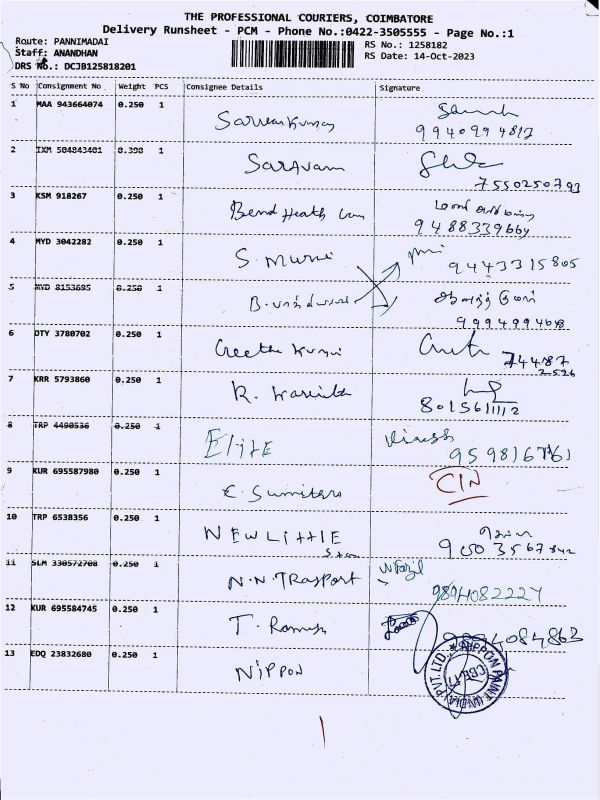 THE PROFESSIONAL COURIERS, COIMBATORE
Delivery Runsheet - PCM - Phone No.:0422-3505555 - Page No.:1
Route: PANNIMADAI RS No.: 1258182
Staff: ANANDHAN RS Date: 14-Oct-2023
DRS No.: DCJB125818201
S No Consignment No Weight PCS Consignee Details Signature
1 MAA 943664074 0.250 1 Sarvankumar
9940994817
2 IXM 504843401 0.300 1 Saravanan
7550250793
3 KSM 918267 0.250 1 Bend Heath
9488339664
4 MYD 3042282 0.250 1 S. Murali
9443315805
5 MYD 8153695 0.250 1 B.
9994994648
6 DTY 3780702 0.250 1 Geetha Kumari
744877
7 KRR 5793860 0.250 1 R. Kavitha
8015611112
8 TRP 4490536 0.250 1 Elite Viresh
9598167761
9 KUR 695587980 0.250 1 E. Sumithra CIN
10 TRP 6538356 0.250 1 NEW LITTLE
9003567842
11 SLM 330572708 0.250 1 N.N TRASPORT
9894082227
12 KUR 695584745 0.250 1 T. Ramesh
9894084863
13 EDQ 23832680 0.250 1 NIPPON
NIPPON PAINT (INDIA) PVT. LTD.
CBE-17